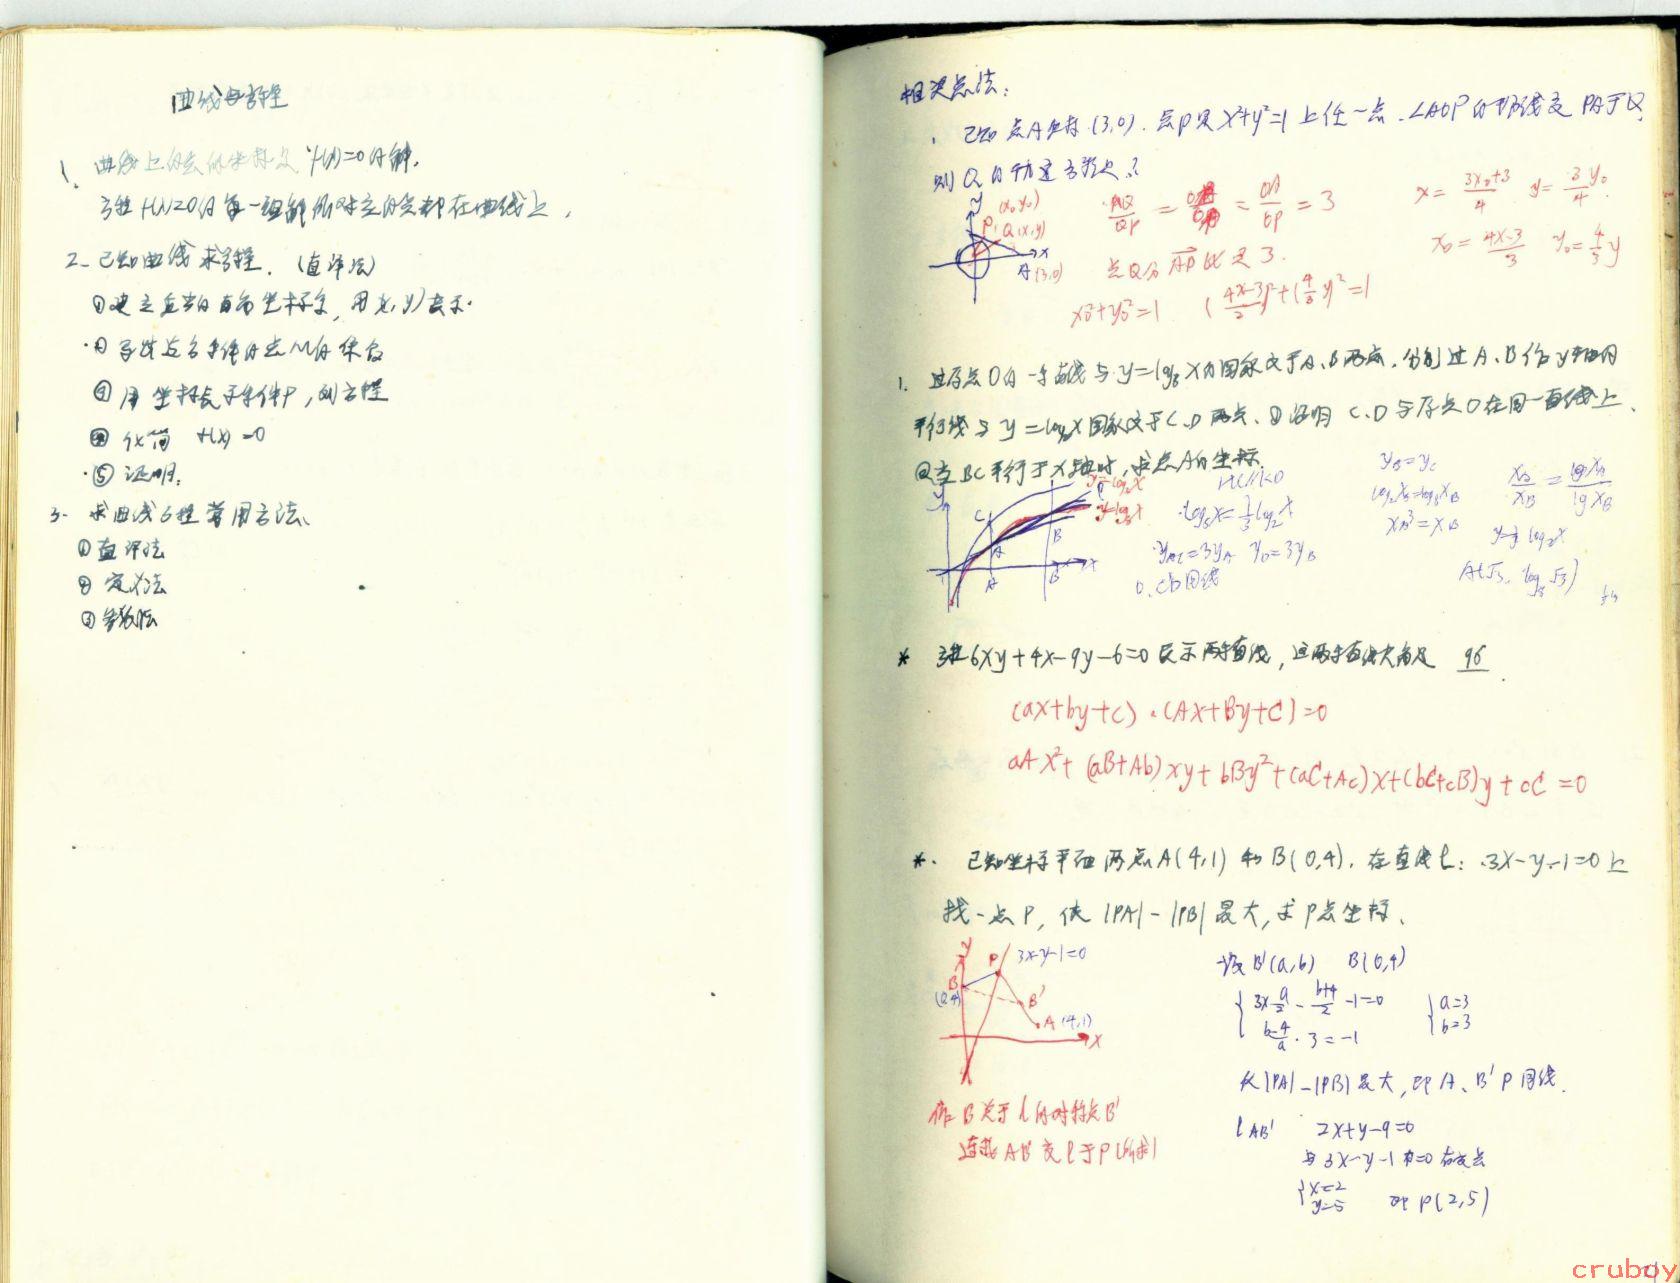 曲线与方程
1. 曲线上的点的坐标是 f(x)=0的解.
方程f(x)=0的每一组解所对应的点都在曲线上.
2. 已知曲线求方程. (直译法)
①建立适当的直角坐标系, 用(x,y)表示.
② 写出适合条件的点M的集合
③ 用坐标表示条件P, 列方程
④ 化简 f(x)=0
⑤ 证明.
3. 求曲线方程常用方法.
① 直译法
② 定义法
③ 参数法
相关点法:
. 已知点A坐标(3,0). 点P是x²+y²=1上任一点. ∠AOP的平分线交PA于Q,
则Q的轨迹方程是?
y (x₀y₀)
P Q(x,y)
x
A(3,0)
AQ/QP = = OA/OP = 3
点Q分AP比是3.
x = (3x₀+3)/4 y = 3y₀/4
x₀ = (4x-3)/3 y₀ = 4/3 y
x₀²+y₀²=1 ((4x-3)/2)²+(4/3 y)²=1
1. 过原点O的一条直线与y=log₈X的图象交于A、B两点. 分别过A、B作y轴的
平行线与y=log₂X图象交于C、D两点. ①证明 C、D与原点O在同一直线上.
②当BC平行于X轴时, 求点A的坐标.
y=log₂x
y=log₈x
C
A
B
log₈x=⅓log₂x
y_C=3y_A y_D=3y_B
O、C、D同线
y_B=y_C
x_A³=x_B
y=⅓log₂x
A(√3, log₈√3)
* 方程6xy+4x-9y-6=0表示两条直线, 这两条直线夹角是 90
(ax+by+c)·(Ax+By+C)=0
aAx²+(aB+Ab)xy+bBy²+(aC+Ac)x+(bC+cB)y+cC=0
*. 已知坐标平面两点A(4,1)和B(0,4). 在直线l: 3x-y-1=0上
找一点P, 使|PA|-|PB|最大, 求P点坐标.
y
P 3x-y-1=0
B
(0,4)
B'
A(4,1)
x
作B关于l的对称点B'
连接AB'交l于P(所求)
设B'(a,b) B(0,4)
{ 3×a/2 - (b+4)/2 -1=0
(b-4)/a·3=-1
{ a=3
b=3
使|PA|-|PB|最大, 即A、B'P同线.
l AB' 2x+y-9=0
与3x-y-1=0有交点
{ x=2
y=5
即P(2,5)
cruboy